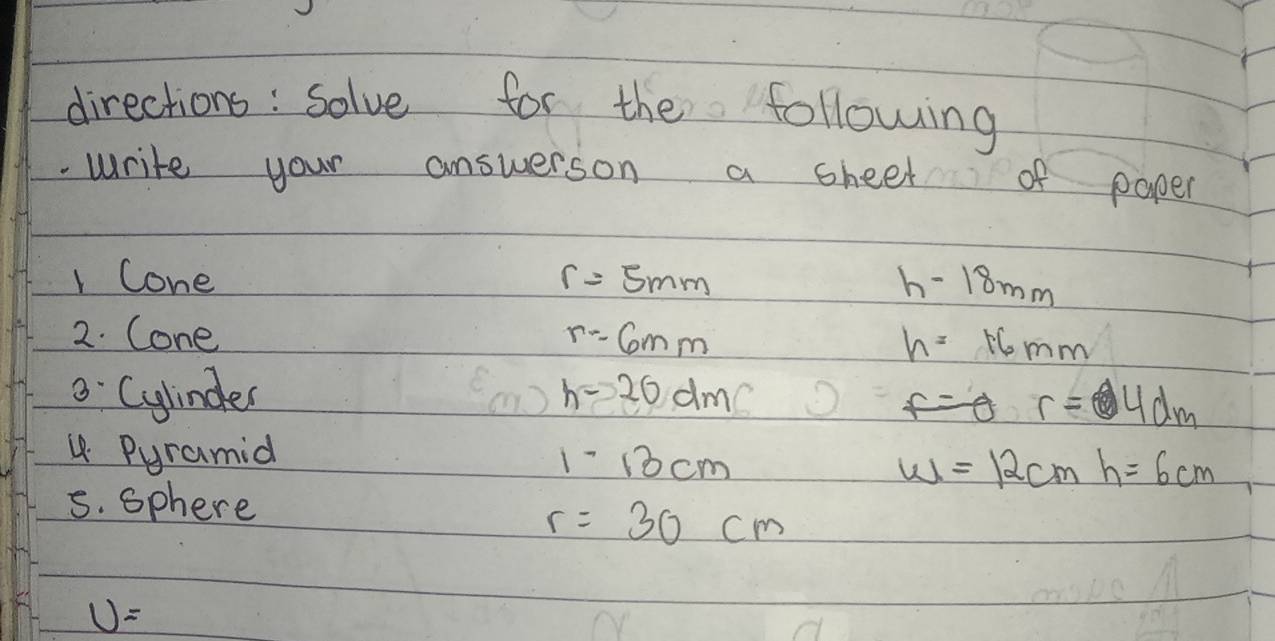 directions: Solve for the following
. Write your answerson a sheet of paper
1 Cone r = 5mm h - 18mm
2. Cone r = 6mm h = 16 mm
3. Cylinder h = 20 dm r = 4dm
4. Pyramid l - 13 cm w = 12cm h = 6cm
5. Sphere r = 30 cm
V=